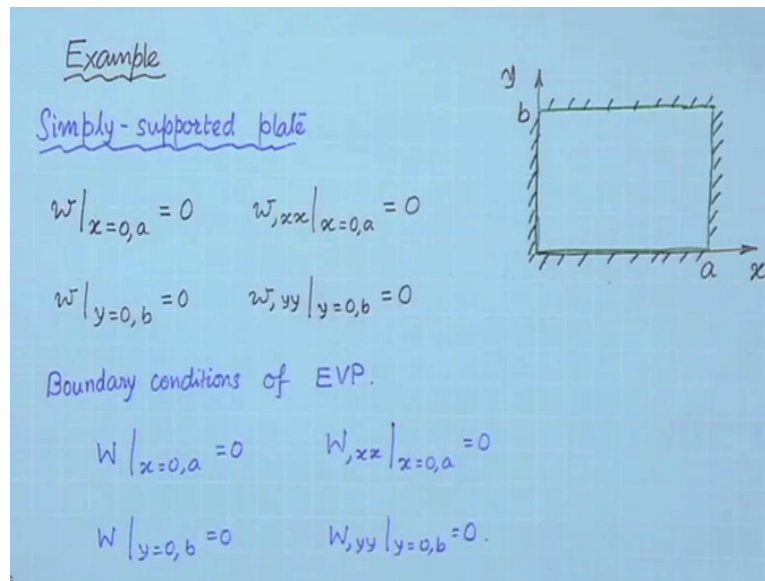 Example
Simply-supported plate
w|x=0,a = 0    w,xx|x=0,a = 0
w|y=0,b = 0    w,yy|y=0,b = 0
Boundary conditions of EVP.
W|x=0,a = 0    W,xx|x=0,a = 0
W|y=0,b = 0    W,yy|y=0,b = 0.
y
b
a
x